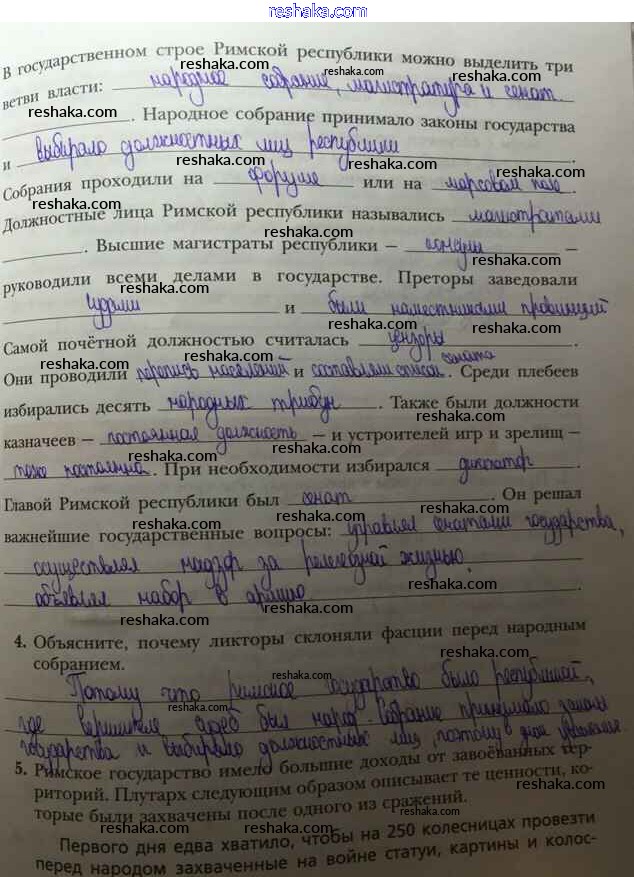 reshaka.com
В государственном строе Римской республики можно выделить три
ветви власти: народное собрание, магистратура и сенат.
. Народное собрание принимало законы государства
и выбирало должностных лиц республики .
Собрания проходили на форуме или на марсовом поле.
Должностные лица Римской республики назывались магистратами
. Высшие магистраты республики – –
руководили всеми делами в государстве. Преторы заведовали
судами и были наместниками провинций
Самой почётной должностью считалась цензоры .
сената
Они проводили перепись населения и составляли список . Среди плебеев
избирались десять народных трибун . Также были должности
казначеев – постоянная должность – и устроителей игр и зрелищ –
тоже постоянная. При необходимости избирался диктатор .
Главой Римской республики был сенат . Он решал
важнейшие государственные вопросы: управлял государства,
осуществлял надзор за религиозной жизнью,
объявлял набор в армию .
4. Объясните, почему ликторы склоняли фасции перед народным
собранием.
Потому что римское государство было республикой,
где вершителем судеб был народ. Собрание принимало законы
государства и выбирало должностных лиц, поэтому в знак уважения
5. Римское государство имело большие доходы от завоёванных тер-
риторий. Плутарх следующим образом описывает те ценности, ко-
торые были захвачены после одного из сражений.
Первого дня едва хватило, чтобы на 250 колесницах провезти
перед народом захваченные на войне статуи, картины и колос-